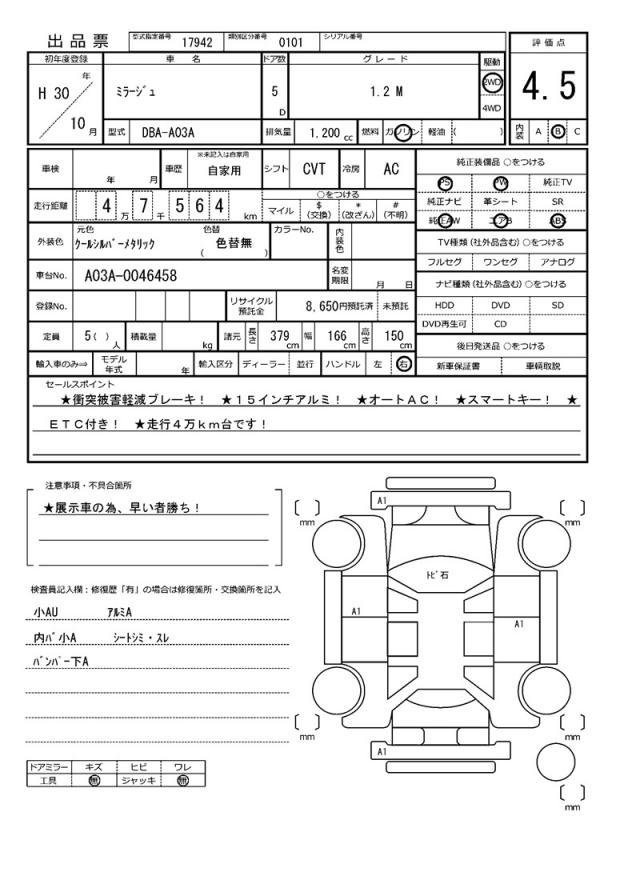 出品票 型式指定番号 17942 類別区分番号 0101 シリアル番号
評価点
4.5
内装 A B C
初年度登録 車名 ドア数 グレード 駆動
H 30 年 10 月 ミラージュ 5 D 1.2 M 2WD 4WD
型式 DBA-A03A 排気量 1.200 cc 燃料 ガソリン 軽油 ( )
車検 年 月 車歴 ※未記入は自家用 自家用 シフト CVT 冷房 AC
走行距離 4 万 7 千 5 6 4 km
○をつける
マイル $(交換) *(改ざん) #(不明)
外装色 元色 クールシルバーメタリック 色替 ( 色替無 ) カラーNo. 内装色
車台No. A03A-0046458 名変期限 月 日
登録No. リサイクル預託金 8,650円預託済 未預託
定員 5( )人 積載量 kg 諸元 長さ 379 cm 幅 166 cm 高さ 150 cm
輸入車のみ⇒ モデル年式 年 輸入区分 ディーラー 並行 ハンドル 左 右
純正装備品 ○をつける
PS PW 純正TV
純正ナビ 革シート SR
純正AW エアB ABS
TV種類(社外品含む)○をつける
フルセグ ワンセグ アナログ
ナビ種類(社外品含む)○をつける
HDD DVD SD
DVD再生可 CD
後日発送品 ○をつける
新車保証書 車輌取説
セールスポイント
★衝突被害軽減ブレーキ! ★15インチアルミ! ★オートAC! ★スマートキー! ★
ETC付き! ★走行4万km台です!
注意事項・不具合箇所
★展示車の為、早い者勝ち!
検査員記入欄:修復歴「有」の場合は修復箇所・交換箇所を記入
小AU アルミA
内バ小A シートシミ・スレ
バンパー下A
ドアミラー キズ ヒビ ワレ
工具 無 ジャッキ 無
A1
mm
mm
トビ石
A1
A1
mm
mm
A1
mm